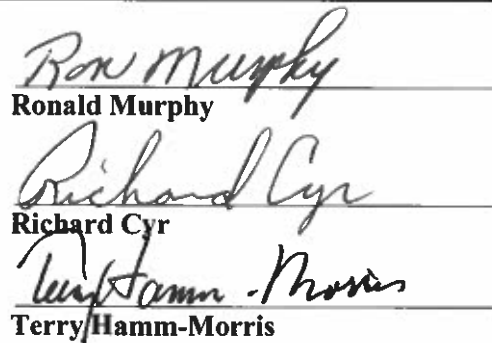 Ron Murphy
Ronald Murphy
Richard Cyr
Richard Cyr
Terry Hamm-Morris
Terry Hamm-Morris